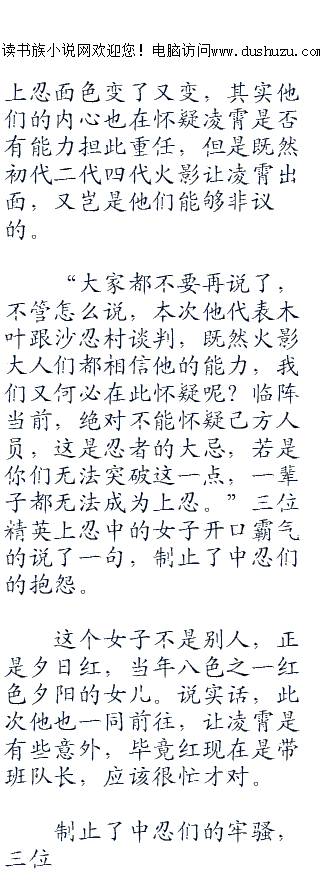 读书族小说网欢迎您！电脑访问www.dushuzu.com
上忍面色变了又变，其实他
们的内心也在怀疑凌霄是否
有能力担此重任，但是既然
初代二代四代火影让凌霄出
面，又岂是他们能够非议
的。
“大家都不要再说了，
不管怎么说，本次他代表木
叶跟沙忍村谈判，既然火影
大人们都相信他的能力，我
们又何必在此怀疑呢？临阵
当前，绝对不能怀疑己方人
员，这是忍者的大忌，若是
你们无法突破这一点，一辈
子都无法成为上忍。”三位
精英上忍中的女子开口霸气
的说了一句，制止了中忍们
的抱怨。
这个女子不是别人，正
是夕日红，当年八色之一红
色夕阳的女儿。说实话，此
次他也一同前往，让凌霄是
有些意外，毕竟红现在是带
班队长，应该很忙才对。
制止了中忍们的牢骚，
三位